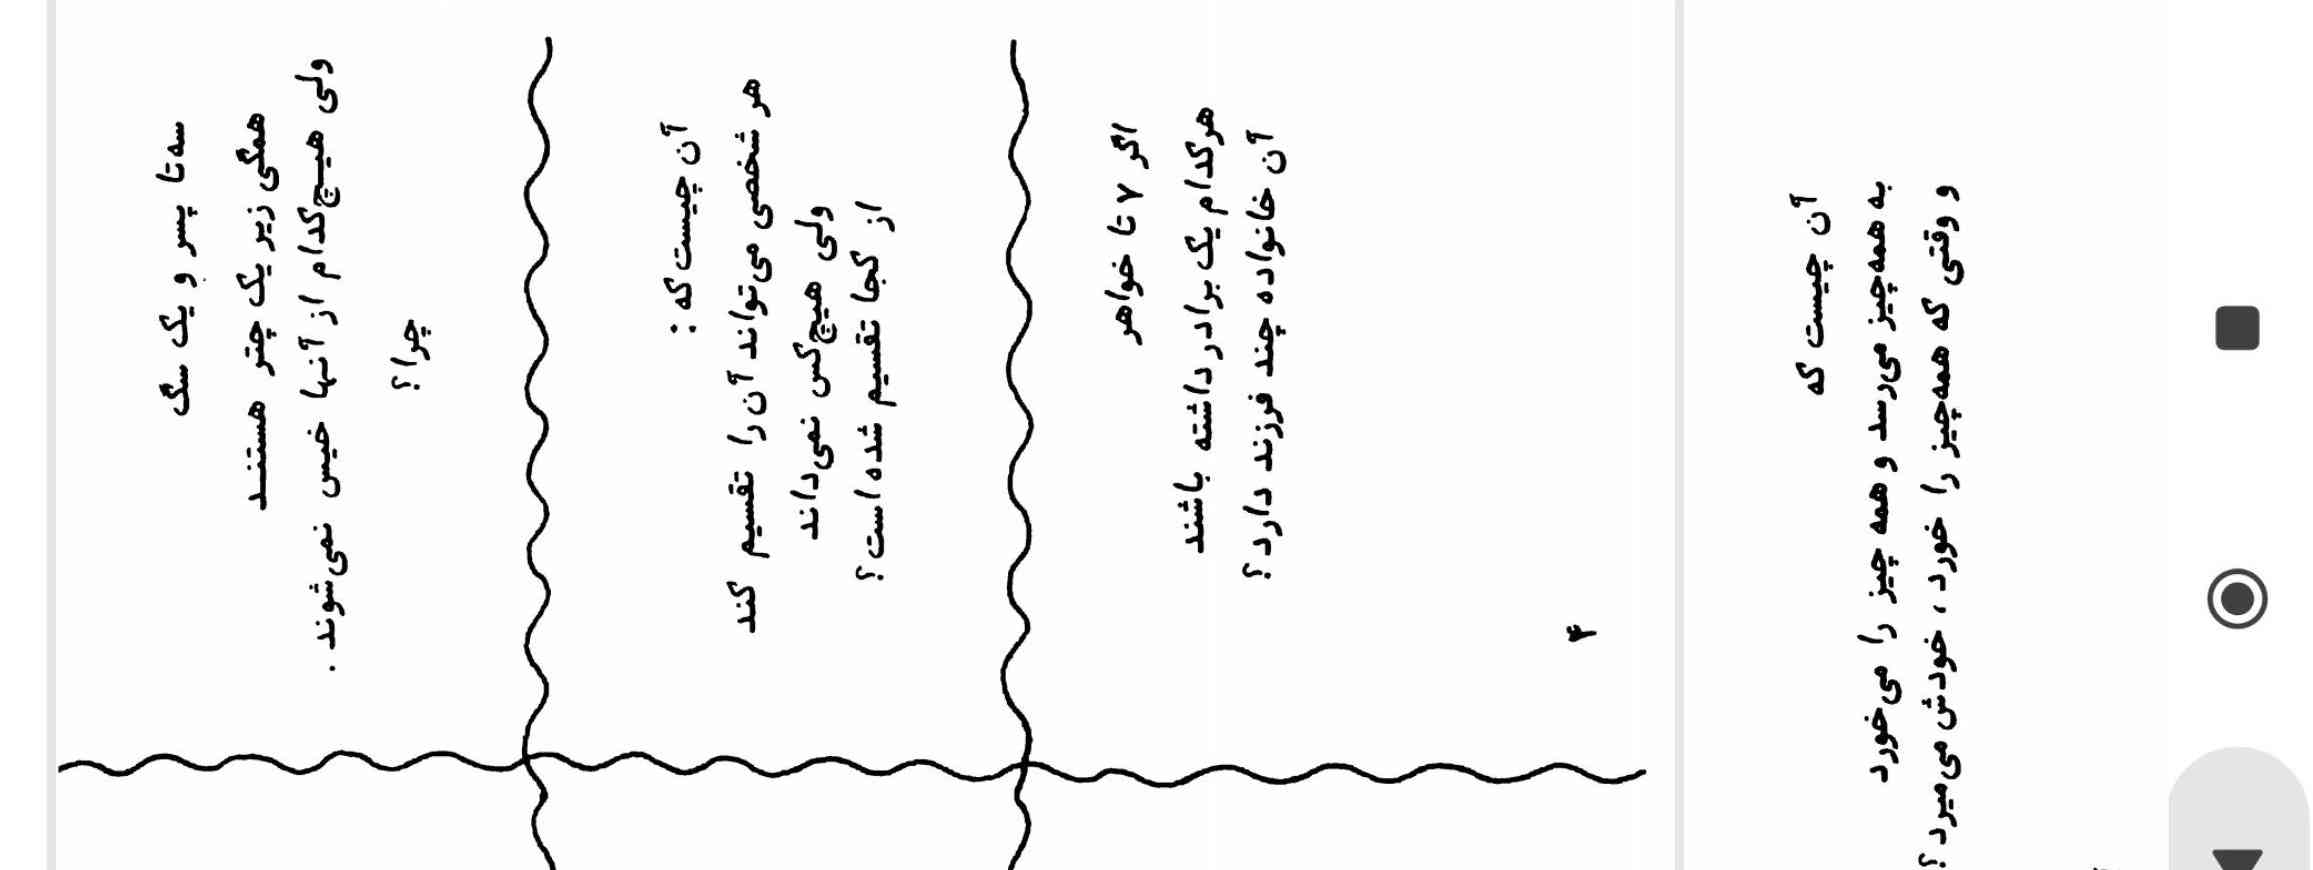 سه‌تا پسر و یک سگ
همگی زیر یک چتر هستند
ولی هیچ‌کدام از آنها خیس نمی‌شوند.
چرا؟
آن چیست که:
هر شخصی می‌تواند آن را تقسیم کند
ولی هیچ‌کس نمی‌داند
از کجا تقسیم شده است؟
اگر ۷ تا خواهر
هرکدام یک برادر داشته باشند
آن خانواده چند فرزند دارد؟
۴
آن چیست که
به همه‌چیز می‌رسد و همه چیز را می‌خورد
و وقتی که همه‌چیز را خورد، خودش می‌میرد؟